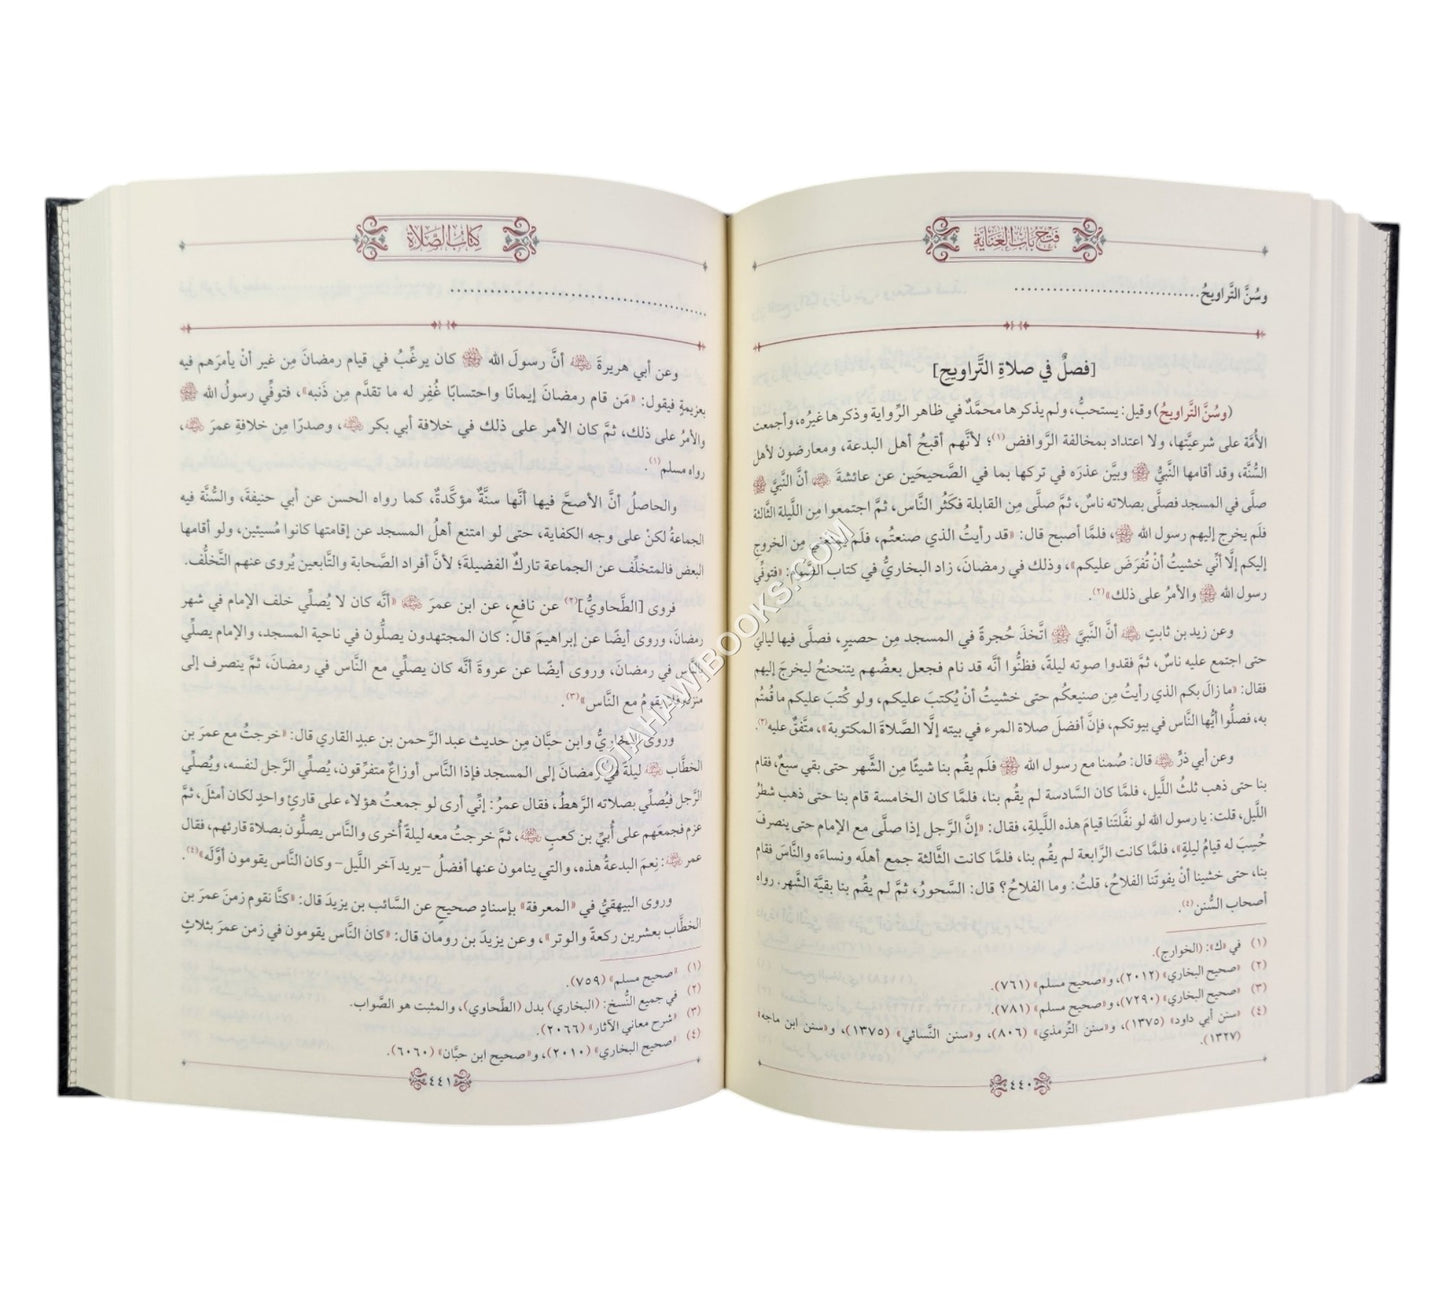 فتح باب العناية
وسُنَّ التَّراويحُ............................
[فصلٌ في صلاةِ التَّراويحِ]
(وسُنَّ التَّراويحُ) وقيل: يستحبُّ، ولم يذكرها محمَّدٌ في ظاهر الرِّواية وذكرها غيرُه، وأجمعت
الأمَّة على شرعيَّتها، ولا اعتداد بمخالفة الرَّوافض(١)؛ لأنَّهم أقبحُ أهل البدعة، ومعارضون لأهل
السُّنَّة، وقد أقامها النَّبيُّ ﷺ وبيَّن عذرَه في تركها بما في الصَّحيحَين عن عائشةَ أنَّ النَّبيَّ ﷺ
صلَّى في المسجد فصلَّى بصلاته ناسٌ، ثمَّ صلَّى مِن القابلة فكَثُر النَّاس، ثمَّ اجتمعوا مِن اللَّيلة الثَّالثة
فلَم يخرج إليهم رسول الله ﷺ، فلمَّا أصبح قال: «قد رأيتُ الذي صنعتُم، فلَم يمنعني مِن الخروج
إليكم إلَّا أنِّي خشيتُ أنْ تُفرَضَ عليكم»، وذلك في رمضانَ، زاد البخاريُّ في كتاب الصَّوم: «فتوفِّي
رسول الله ﷺ والأمرُ على ذلك»(٢).
وعن زيد بن ثابتٍ أنَّ النَّبيَّ ﷺ اتَّخذَ حُجرةً في المسجد مِن حصيرٍ، فصلَّى فيها لياليَ
حتى اجتمع عليه ناسٌ، ثمَّ فقدوا صوته ليلةً، فظنُّوا أنَّه قد نام فجعل بعضُهم يتنحنحُ ليخرجَ إليهم
فقال: «ما زالَ بكم الذي رأيتُ مِن صنيعكُم حتى خشيتُ أنْ يُكتبَ عليكم، ولو كُتبَ عليكم ما قُمتُم
به، فصلُّوا أيُّها النَّاس في بيوتكم، فإنَّ أفضلَ صلاة المرء في بيته إلَّا الصَّلاةَ المكتوبة»، متَّفقٌ عليه(٣).
وعن أبي ذرٍّ قال: صُمنا مع رسول الله ﷺ فلَم يقُم بنا شيئًا مِن الشَّهر حتى بقي سبعٌ، فقام
بنا حتى ذهب ثلثُ اللَّيل، فلمَّا كان السَّادسة لم يقُم بنا، فلمَّا كان الخامسة قام بنا حتى ذهب شطرُ
اللَّيل، قلت: يا رسول الله لو نفَّلتَنا قيامَ هذه اللَّيلةِ، فقال: «إنَّ الرَّجل إذا صلَّى مع الإمام حتى ينصرفَ
حُسِبَ له قيامُ ليلةٍ»، فلمَّا كانت الرَّابعة لم يقُم بنا، فلمَّا كانت الثَّالثة جمع أهلَه ونساءَه والنَّاسَ فقام
بنا، حتى خشينا أنْ يفوتَنا الفلاحُ، قلتُ: وما الفلاحُ؟ قال: السَّحورُ، ثمَّ لم يقُم بنا بقيَّة الشَّهر. رواه
أصحاب السُّنن(٤).
(١) في «ك»: (الخوارج).
(٢) «صحيح البخاري» (٢٠١٢)، و«صحيح مسلم» (٧٦١).
(٣) «صحيح البخاري» (٧٢٩٠)، و«صحيح مسلم» (٧٨١).
(٤) «سنن أبي داود» (١٣٧٥)، و«سنن التِّرمذي» (٨٠٦)، و«سنن النَّسائي» (١٣٧٥)، و«سنن ابن ماجه»
(١٣٢٧).
٤٤٠
كتاب الصلاة
......................................
وعن أبي هريرةَ أنَّ رسولَ الله ﷺ كان يرغِّبُ في قيام رمضانَ مِن غير أنْ يأمرَهم فيه
بعزيمةٍ فيقول: «مَن قام رمضانَ إيمانًا واحتسابًا غُفِر له ما تقدَّم مِن ذَنبه»، فتوفِّي رسولُ الله ﷺ
والأمرُ على ذلك، ثمَّ كان الأمر على ذلك في خلافة أبي بكر، وصدرًا مِن خلافةِ عمرَ،
رواه مسلم(١).
والحاصلُ أنَّ الأصحَّ فيها أنَّها سنَّةٌ مؤكَّدةٌ، كما رواه الحسن عن أبي حنيفةَ، والسُّنَّة فيه
الجماعةُ لكنْ على وجه الكفاية، حتى لو امتنع أهلُ المسجد عن إقامتها كانوا مُسيئين، ولو أقامها
البعض فالمتخلِّف عن الجماعة تاركٌ الفضيلةَ؛ لأنَّ أفراد الصَّحابة والتَّابعين يُروى عنهم التَّخلُّف.
فروى [الطَّحاويُّ](٢) عن نافعٍ، عن ابن عمرَ «أنَّه كان لا يُصلِّي خلف الإمام في شهر
رمضانَ، وروى أيضًا عن إبراهيمَ قال: كان المجتهدون يصلُّون في ناحية المسجد، والإمام يصلِّي
بالنَّاس في رمضانَ، وروى أيضًا عن عروةَ أنَّه كان يصلِّي مع النَّاس في رمضانَ، ثمَّ ينصرف إلى
منزله فلا يقومُ مع النَّاس»(٣).
وروى البخاريُّ وابن حبَّان مِن حديث عبد الرَّحمن بن عبدٍ القاري قال: «خرجتُ مع عمرَ بن
الخطَّاب ليلةً في رمضانَ إلى المسجد فإذا النَّاس أوزاعٌ متفرِّقون، يُصلِّي الرَّجل لنفسه، ويُصلِّي
الرَّجل فيُصلِّي بصلاته الرَّهطُ، فقال عمرُ: إنِّي أرى لو جمعتُ هؤلاء على قارئٍ واحدٍ لكان أمثلَ، ثمَّ
عزم فجمعَهم على أُبيِّ بن كعبٍ، ثمَّ خرجتُ معه ليلةً أُخرى والنَّاس يصلُّون بصلاة قارئهم، فقال
عمر: نِعمَ البدعةُ هذه، والتي ينامون عنها أفضلُ -يريد آخر اللَّيل- وكان النَّاس يقومون أوَّلَه»(٤).
وروى البيهقيُّ في «المعرفة» بإسنادٍ صحيحٍ عن السَّائب بن يزيدَ قال: «كنَّا نقوم زمنَ عمرَ بن
الخطَّاب بعشرين ركعةً والوتر»، وعن يزيدَ بن رومان قال: «كان النَّاس يقومون في زمن عمرَ بثلاثٍ
(١) «صحيح مسلم» (٧٥٩).
(٢) في جميع النُّسخ: (البخاري) بدل (الطَّحاوي)، والمثبت هو الصَّواب.
(٣) «شرح معاني الآثار» (٢٠٦٦).
(٤) «صحيح البخاري» (٢٠١٠)، و«صحيح ابن حبَّان» (٦٠٦٠).
٤٤١
©TAHAWIBOOKS.COM